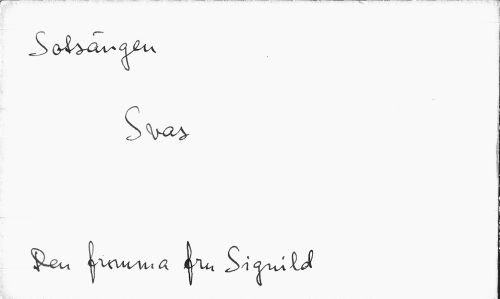 Sotsängen
Svas
Den fromma fru Signild